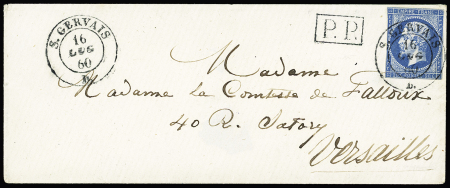 S. GERVAIS
16
60
P.P.
S. GERVAIS
16
EMPIRE FRANC.
Madame
Madame La Comtesse de Falloux
40 R. Satory
Versailles